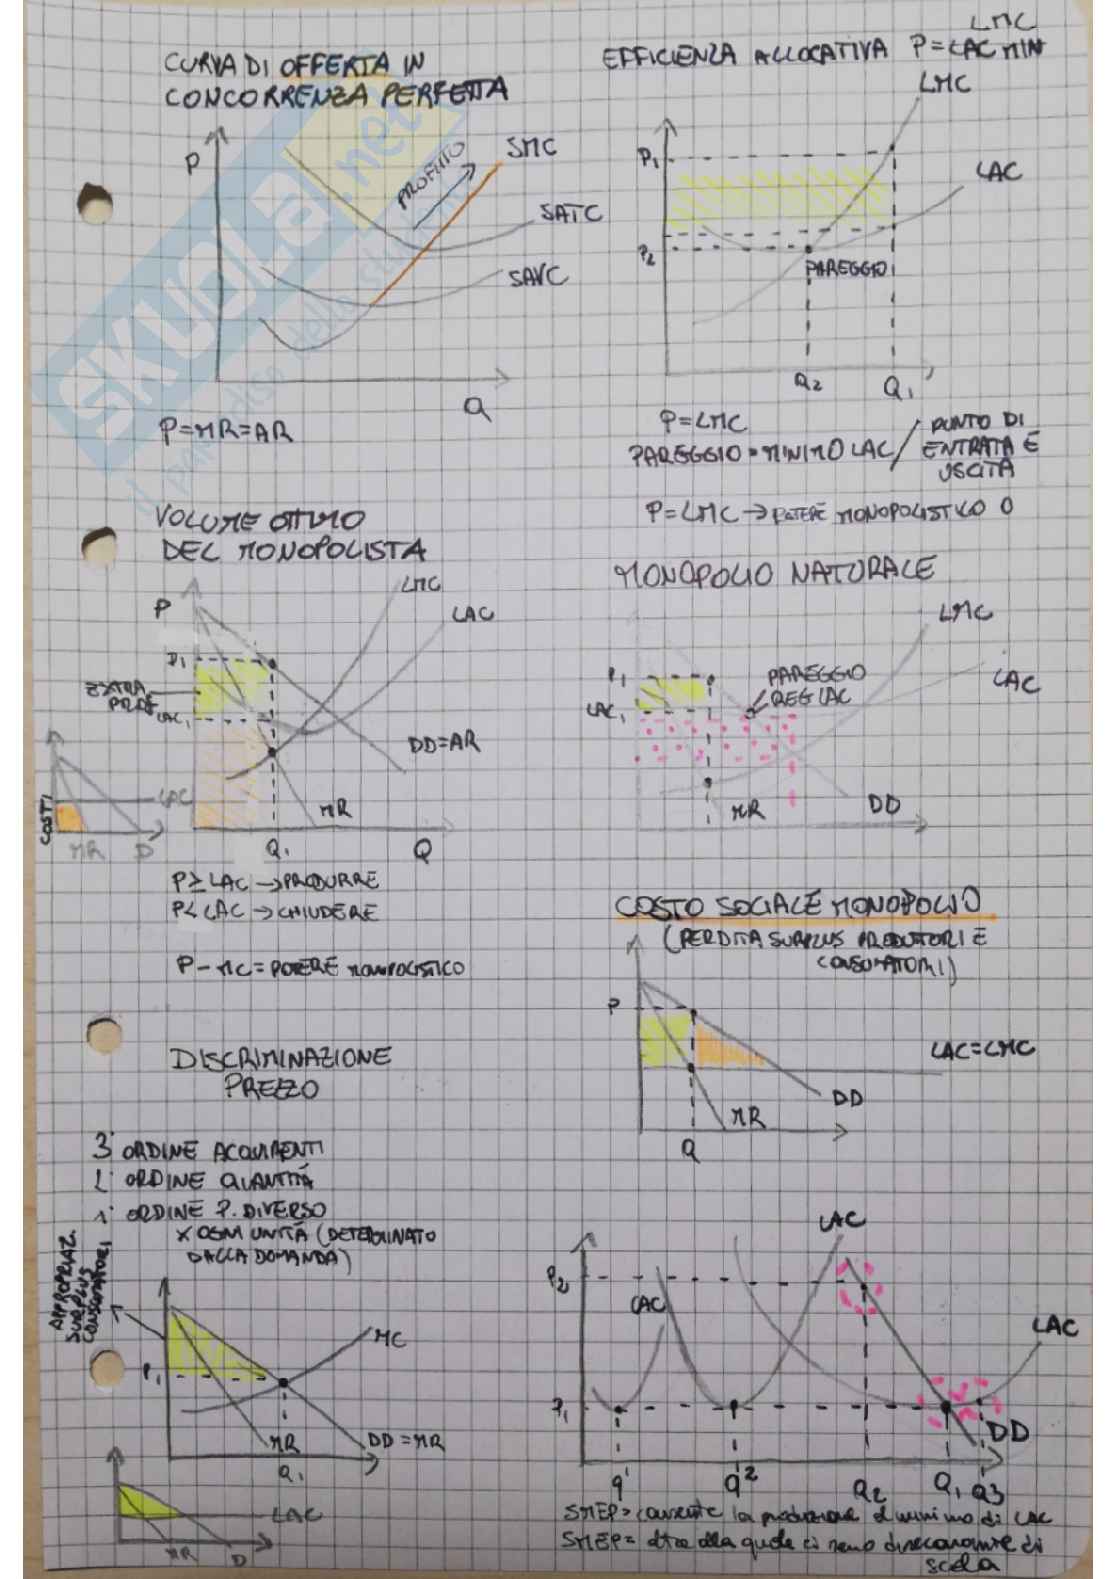 CURVA DI OFFERTA IN
CONCORRENZA PERFETTA
P
PROFITTO
SMC
SATC
SAVC
Q
P=MR=AR
EFFICIENZA ALLOCATIVA P=LAC MIN
LMC
LMC
P1
LAC
P2
PAREGGIO
Q2
Q1
P=LMC
PAREGGIO = MINIMO LAC / PUNTO DI
ENTRATA E
USCITA
P=LMC → POTERE MONOPOLISTICO 0
VOLUME OTTIMO
DEL MONOPOLISTA
P
LMC
LAC
P1
EXTRA
PROF
LAC1
DD=AR
MR
Q1
Q
COSTI
LAC
MR
D
P≥LAC → PRODURRE
P<LAC → CHIUDERE
P-MC = POTERE MONOPOLISTICO
MONOPOLIO NATURALE
LMC
P1
PAREGGIO
REG LAC
LAC
LAC1
MR
DD
COSTO SOCIALE MONOPOLIO
(PERDITA SURPLUS PRODUTTORI E
CONSUMATORI)
P
LAC=LMC
DD
MR
Q
DISCRIMINAZIONE
PREZZO
3° ORDINE ACQUIRENTI
2° ORDINE QUANTITÀ
1° ORDINE P. DIVERSO
X OGNI UNITÀ (DETERMINATO
DALLA DOMANDA)
APPROPRIAZ.
SURPLUS
CONSUMATORI
MC
P1
MR
DD=MR
Q1
LAC
MR
D
LAC
P2
LAC
LAC
P1
DD
q1
q2
Q2
Q1
Q3
SMEP > consente la produzione al minimo di LAC
SMEP = oltre alla quale ci sono diseconomie di
scala
SKUOLA.net
il paradiso dello studente